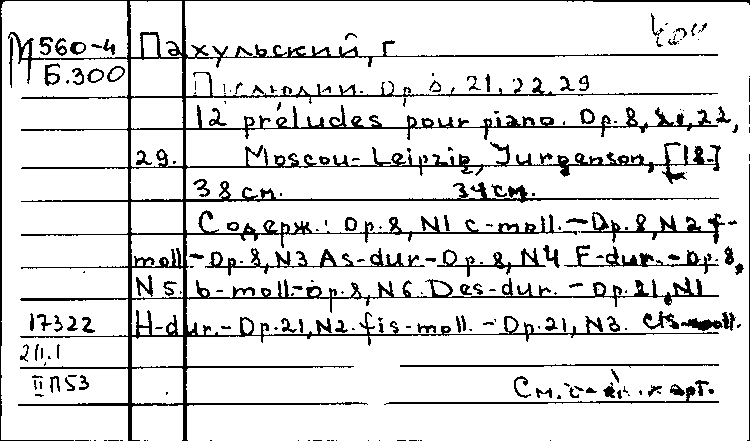 М 560-4 Пахульский, Г
Б.300
Прелюдии. Op. 8, 21, 22, 29
12 préludes pour piano. Op. 8, 21, 22,
29. Moscou-Leipzig, Jurgenson, [18-]
38 см. 34 см.
Содерж.: Op. 8, N1 c-moll.-Op. 8, N2 f-
moll-Op. 8, N3 As-dur-Op. 8, N4 F-dur.-Op. 8,
N5. b-moll-op. 8, N6. Des-dur.-Op. 21, N1
17322 H-dur.-Op. 21, N2. fis-moll.-Op. 21, N3. cis-moll.
2/1.1
II П53
См. карт.